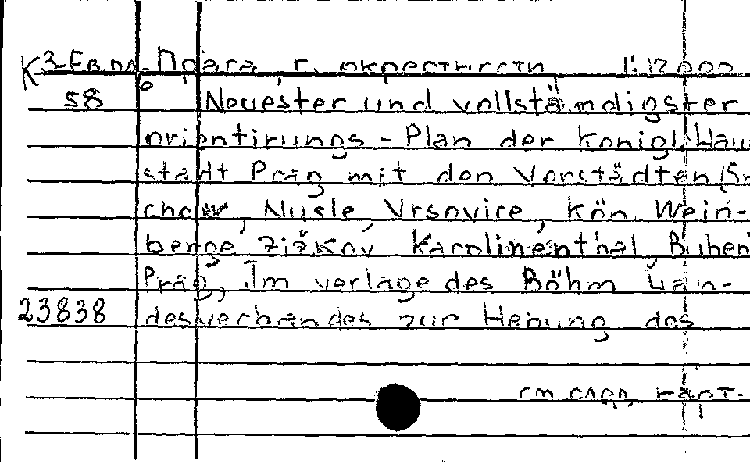 К 3-Евр. Прага, г. окрестности 1:12000
58 6 Neuester und vollständigster
orientirungs-Plan der Konigl. Hau
stadt Prag mit den Vorstädten (Sm
chow, Nusle, Vrsovice, Kön. Wein-
berge, Zižkov Karolinenthal, Buben
Prag, Im verlage des Böhm Lan-
23838 desverbandes zur Hebung des
см след. карт.